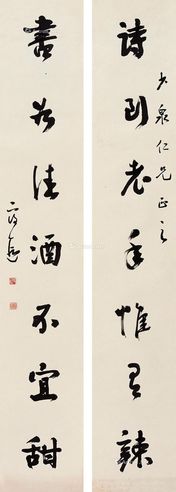 詩到老年惟有辣
少泉仁兄正之
書如佳酒不宜甜